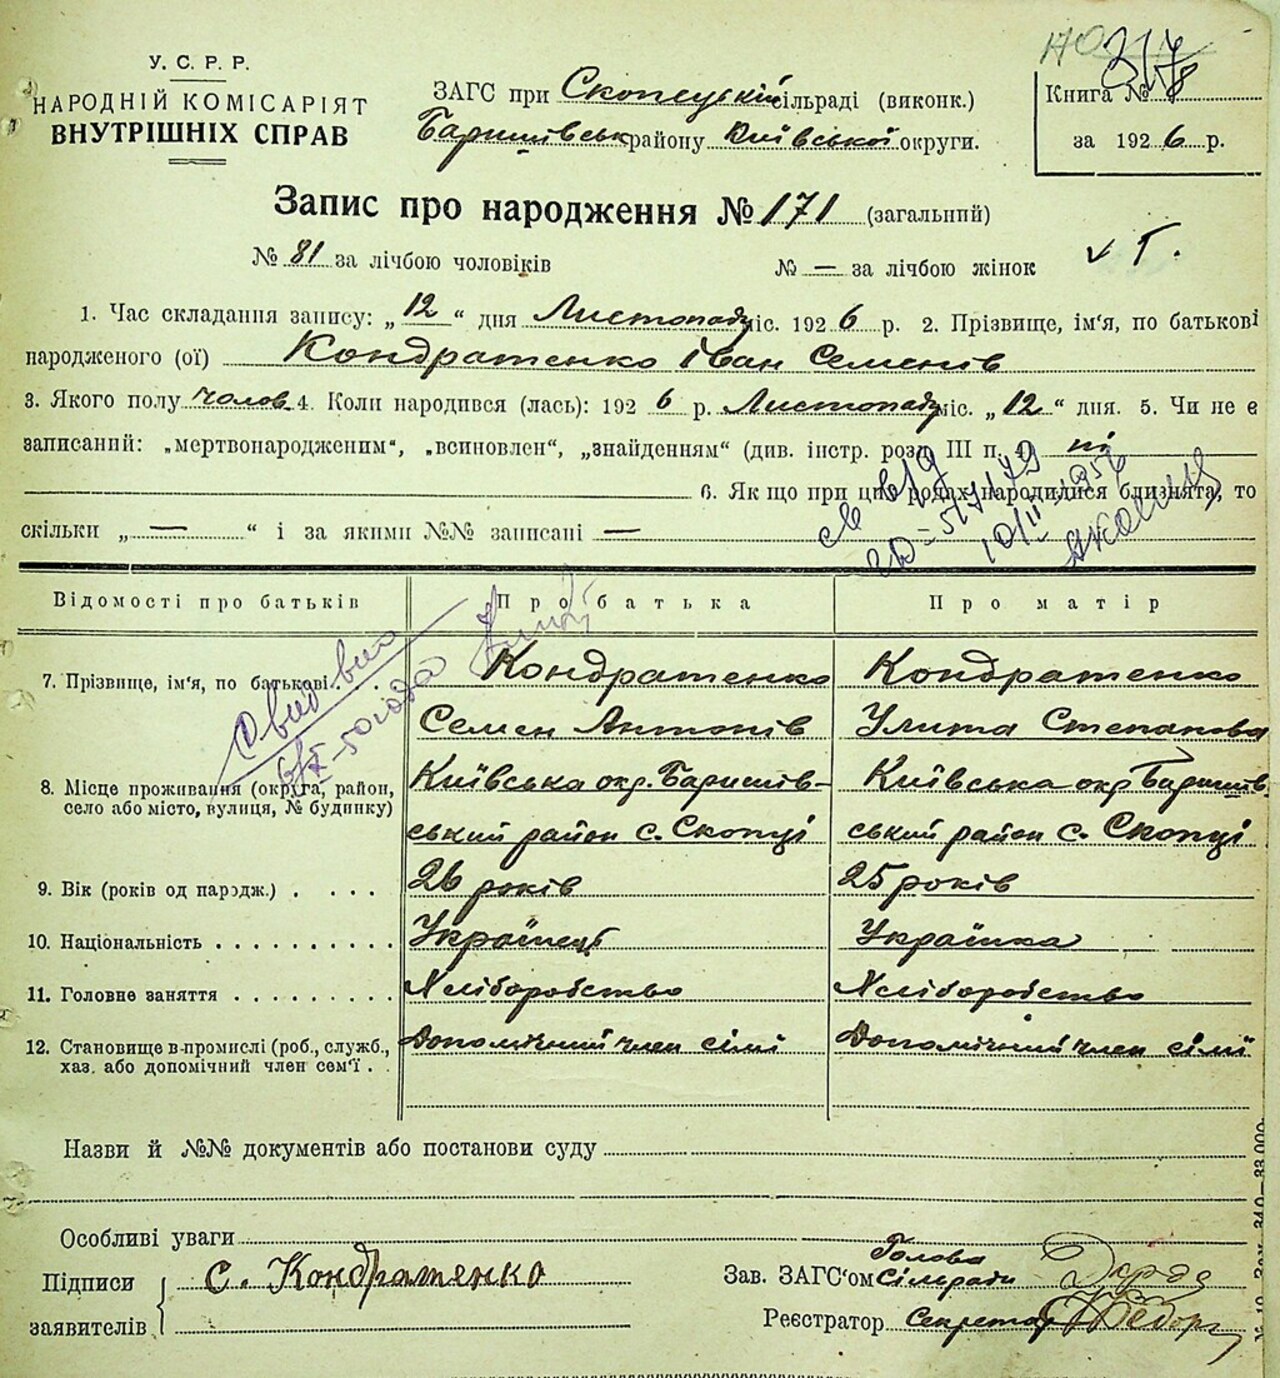 У. С. Р. Р.
НАРОДНІЙ КОМІСАРІЯТ
ВНУТРІШНІХ СПРАВ
ЗАГС при Скопецькій сільраді (виконк.)
Баришівськ району Київської округи.
Книга №
за 1926 р.
Запис про народження № 171 (загальний)
№ 81 за лічбою чоловіків № — за лічбою жінок
1. Час складання запису: „12“ дня Листопаду міс. 1926 р. 2. Прізвище, ім'я, по батькові
народженого (ої) Кондратенко Іван Семенів
3. Якого полу чолов. 4. Коли народився (лась): 1926 р. Листопаду міс. „12“ дня. 5. Чи не є
записаний: „мертвонародженим“, „всиновлен“, „знайденням“ (див. інстр. розд. III п. ні
6. Як що при цих родах народилися близнята, то
скільки „—“ і за якими №№ записані —
Відомості про батьків Про батька Про матір
7. Прізвище, ім'я, по батькові . . . Кондратенко Кондратенко
Семен Антонів Улита Степанова
8. Місце проживання (округа, район, Київська окр. Баришів- Київська окр Баришів-
село або місто, вулиця, № будинку)
ський район с. Скопці ський район с. Скопці
9. Вік (років од народж.) . . . . 26 років 25 років
10. Національність . . . . . . . . . . Українець Українка
11. Головне заняття . . . . . . . . . Хліборобство Хліборобство
12. Становище в промислі (роб., служб., Допомічний член сімї Допомічний член сімї
хаз. або допомічний член сем'ї . .
Назви й №№ документів або постанови суду
Особливі уваги
Підписи С. Кондратенко
заявителів
Зав. ЗАГС'ом Голова Сільради
Реєстратор Секретар